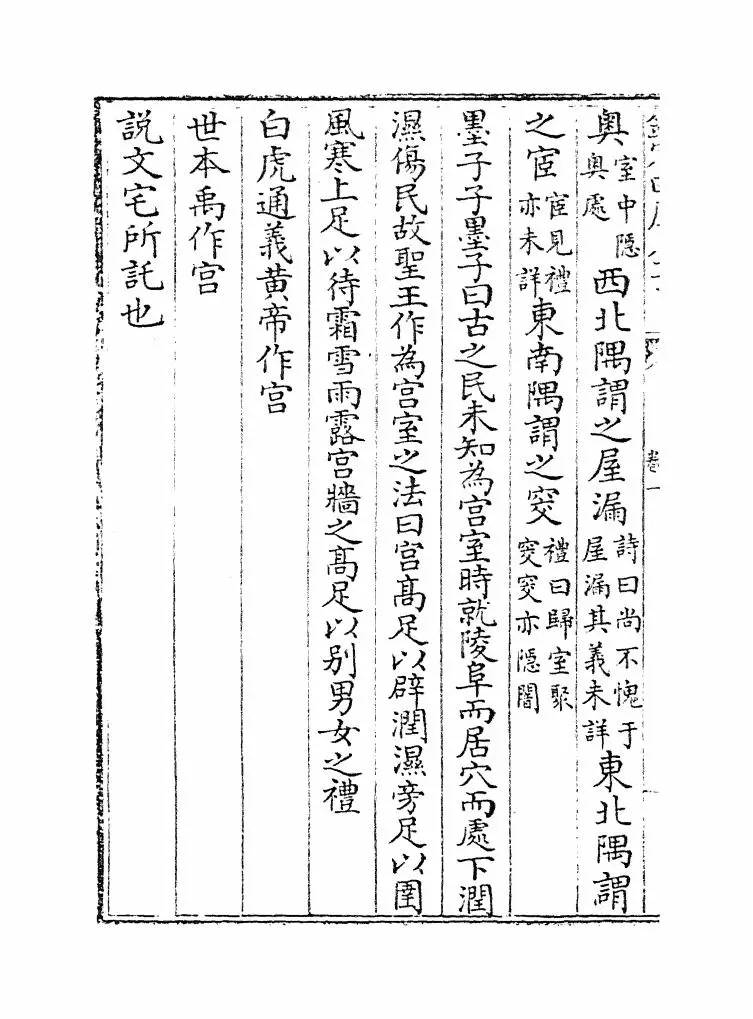 奥室中隠奥處西北隅謂之屋漏詩曰尚不愧于屋漏其義未詳東北隅謂
之宧宧見禮亦未詳東南隅謂之窔禮曰歸室聚窔窔亦隠闇
墨子子墨子曰古之民未知為宫室時就陵阜而居穴而處下潤
濕傷民故聖王作為宫室之法曰宫髙足以辟潤濕旁足以圉
風寒上足以待霜雪雨露宫牆之髙足以别男女之禮
白虎通義黄帝作宫
世本禹作宫
説文宅所託也
卷一